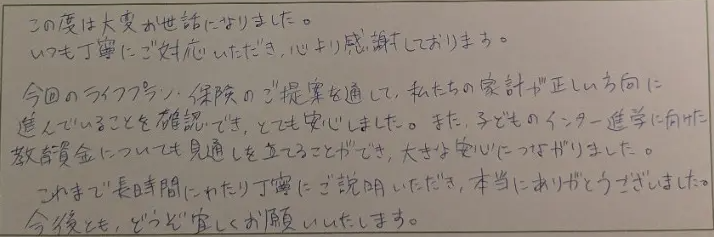 この度は大変お世話になりました。
いつも丁寧にご対応いただき、心より感謝しております。
今回のライフプラン・保険のご提案を通して、私たちの家計が正しい方向に
進んでいることを確認でき、とても安心しました。また、子どものインター進学に向けた
教育資金についても見通しを立てることができ、大きな安心につながりました。
これまで長時間にわたり丁寧にご説明いただき、本当にありがとうございました。
今後とも、どうぞ宜しくお願いいたします。